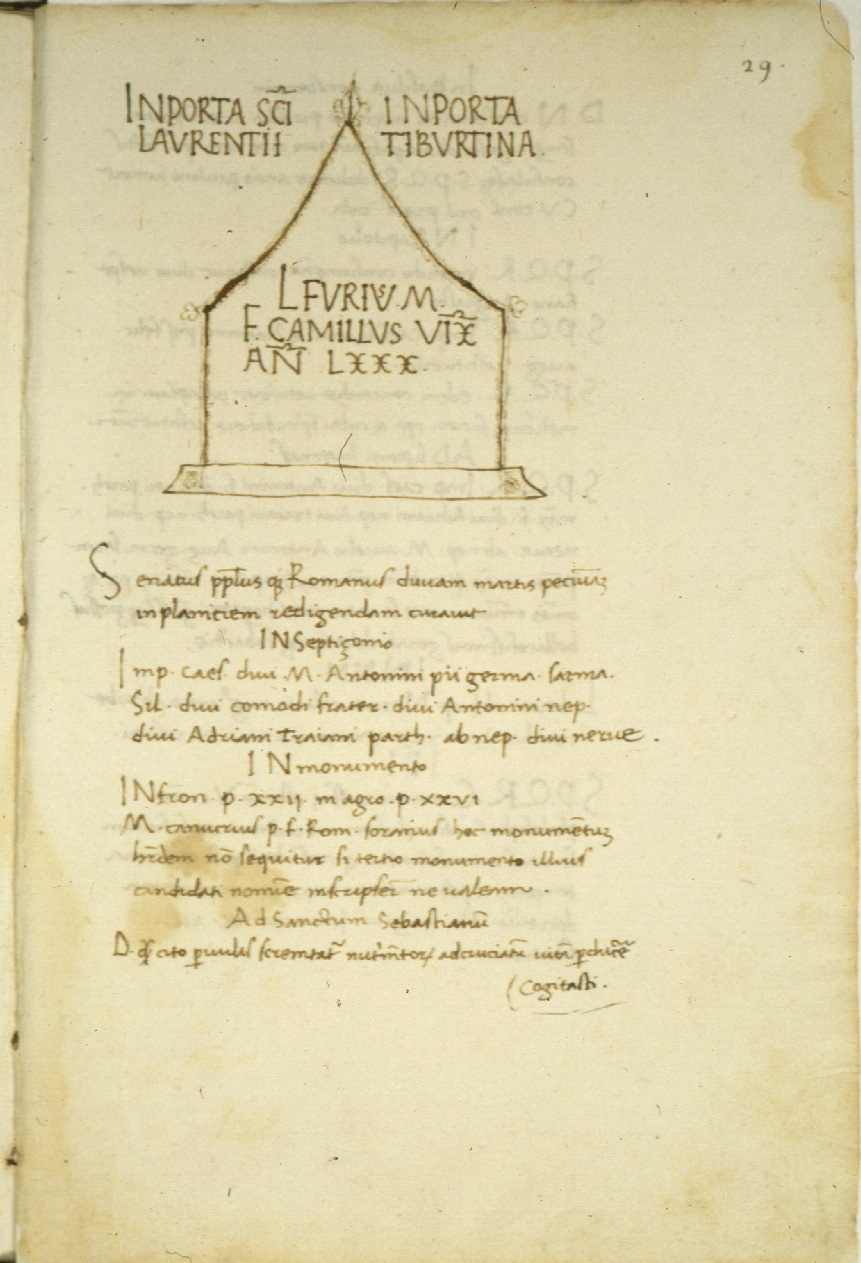 29.
INPORTA SCI
LAVRENTII
INPORTA
TIBVRTINA.
L FVRIVS. M.
F. CAMILLVS VIX
AN LXXX.
Senatus pplus q Romanus duuam martis pecunia
in planitiem redigendam curauit
IN Septizonio
Imp. Caes. diui. M. Antonini pii germa. sarma.
Sil. diui comodi frater. diui Antonini nep.
diui Adriani Traiani parth. abnep. diui nerue.
IN monumento
IN fron. p. xxii. in agro. p. xxvi
M. p. f. Rom. soranus hoc monumentuz
hrdem no sequitur si tertio monumento illius
candidati nomie inscripser ne ualeam.
Ad Sanctum Sebastianu
D. cito ad cruciatu
Cogitasti.